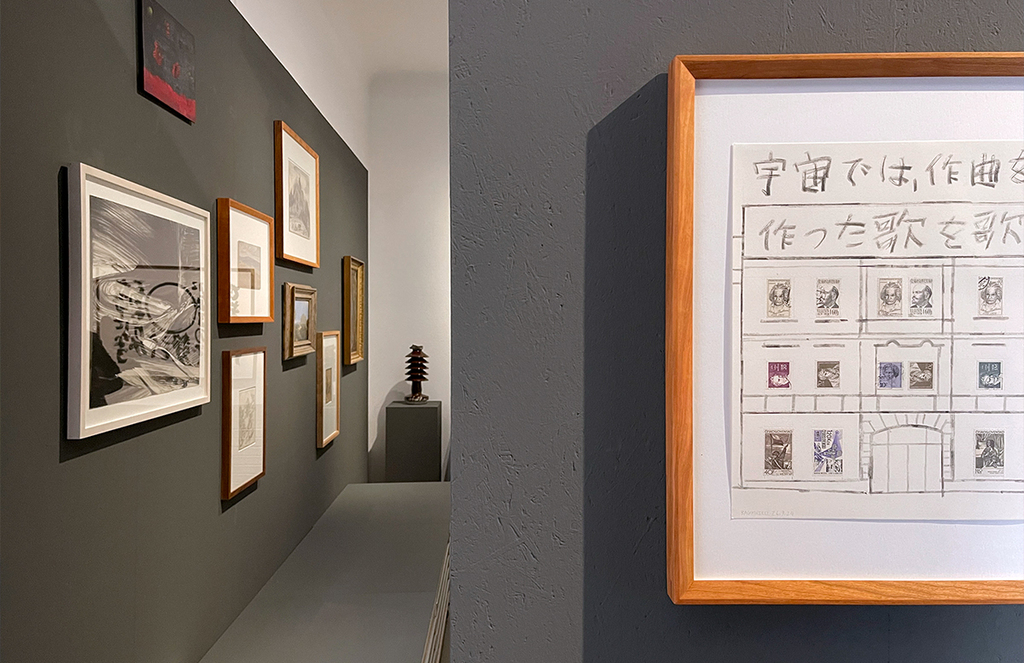 宇宙では,作曲を
作った歌を歌